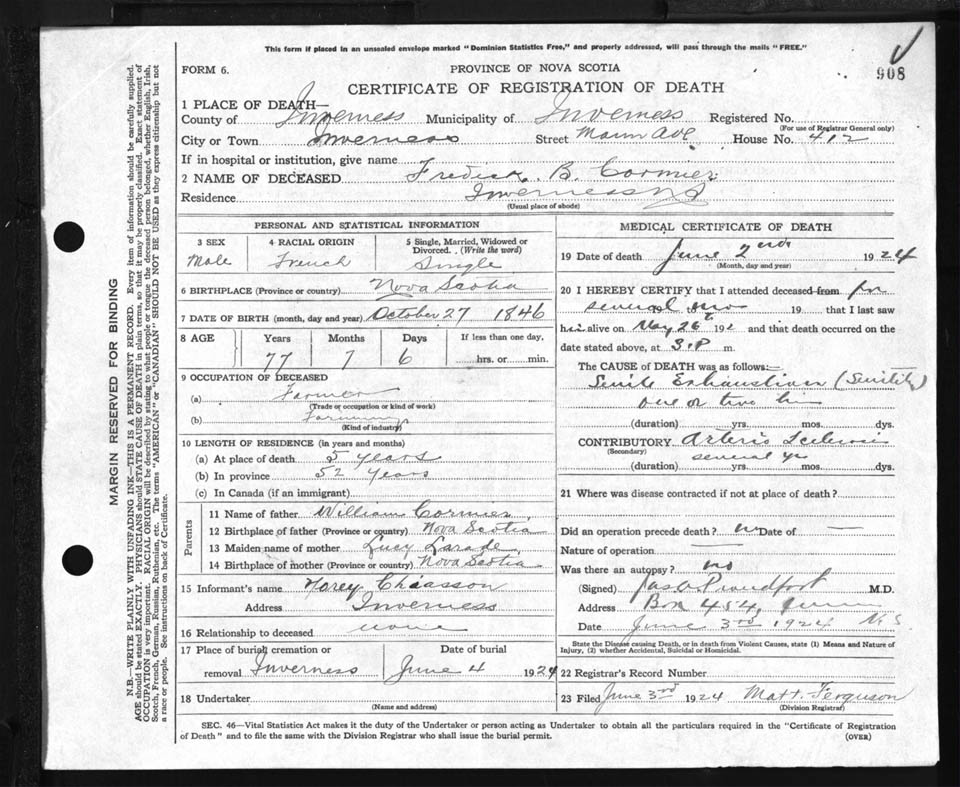 This form if placed in an unsealed envelope marked "Dominion Statistics Free," and properly addressed, will pass through the mails "FREE."
908
FORM 6.
PROVINCE OF NOVA SCOTIA
CERTIFICATE OF REGISTRATION OF DEATH
1 PLACE OF DEATH—
County of Inverness Municipality of Inverness Registered No.
(For use of Registrar General only)
City or Town Inverness Street House No. 412
If in hospital or institution, give name
2 NAME OF DECEASED B. Cormier
Residence Inverness NS
(Usual place of abode)
PERSONAL AND STATISTICAL INFORMATION
3 SEX 4 RACIAL ORIGIN 5 Single, Married, Widowed or Divorced. . (Write the word)
Male French Single
6 BIRTHPLACE (Province or country) Nova Scotia
7 DATE OF BIRTH (month, day and year) October 27 1846
8 AGE Years Months Days If less than one day,
77 7 6 hrs. or min.
9 OCCUPATION OF DECEASED
(a) Farmer
(Trade or occupation or kind of work)
(b) Farming
(Kind of industry)
10 LENGTH OF RESIDENCE (in years and months)
(a) At place of death 5 years
(b) In province 52 years
(c) In Canada (if an immigrant)
Parents
11 Name of father William Cormier
12 Birthplace of father (Province or country) Nova Scotia
13 Maiden name of mother Lucy Larade
14 Birthplace of mother (Province or country) Nova Scotia
15 Informant's name Chiasson
Address Inverness
16 Relationship to deceased none
17 Place of burial cremation or removal Inverness Date of burial June 4 1924
18 Undertaker
(Name and address)
MEDICAL CERTIFICATE OF DEATH
19 Date of death June 2nd 1924
(Month, day and year)
20 I HEREBY CERTIFY that I attended deceased from for
several mo 19 that I last saw
him alive on May 26th 192 and that death occurred on the
date stated above, at 3 P m.
The CAUSE of DEATH was as follows:—
Senile Exhaustion (Senility)
one or two
(duration) yrs. mos. dys.
CONTRIBUTORY Arterio Sclerosis
(Secondary) several yrs
(duration) yrs. mos. dys.
21 Where was disease contracted if not at place of death?
Did an operation precede death? no Date of —
Nature of operation —
Was there an autopsy? no
(Signed) M.D.
Address Box 454, N.S.
Date June 3rd 1924
State the Disease causing Death, or in death from Violent Causes, state (1) Means and Nature of
Injury, (2) whether Accidental, Suicidal or Homicidal.
22 Registrar's Record Number
23 Filed June 3rd 1924 Matt. Ferguson
(Division Registrar)
SEC. 46—Vital Statistics Act makes it the duty of the Undertaker or person acting as Undertaker to obtain all the particulars required in the "Certificate of Registration
of Death" and to file the same with the Division Registrar who shall issue the burial permit.
(OVER)
MARGIN RESERVED FOR BINDING
N.B.—WRITE PLAINLY WITH UNFADING INK—THIS IS A PERMANENT RECORD. Every item of information should be carefully supplied.
AGE should be stated EXACTLY. PHYSICIANS should STATE CAUSE OF DEATH in plain terms, so that it may be properly classified. Exact statement of
OCCUPATION is very important. RACIAL ORIGIN will be described by stating to what people or tongue the deceased person belonged, whether English, Irish,
Scotch, French, German, Russian, Ruthenian, etc. The terms "AMERICAN" or "CANADIAN" SHOULD NOT BE USED as they express citizenship but not
a race or people. See instructions on back of Certificate.